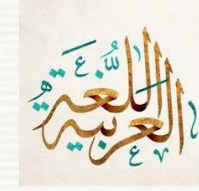 اللُّغة
العربيّة